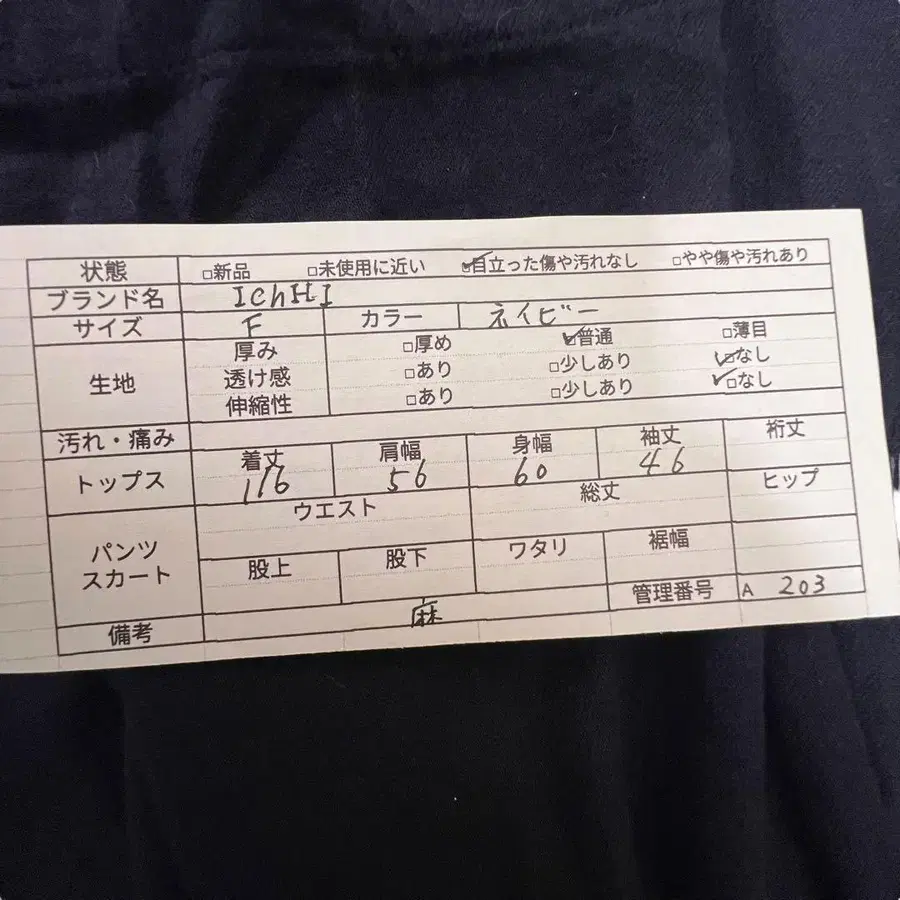 状態 □新品 □未使用に近い ☑目立った傷や汚れなし □やや傷や汚れあり
ブランド名 IChHI
サイズ F カラー ネイビー
生地 厚み □厚め ☑普通 □薄目
透け感 □あり □少しあり ☑なし
伸縮性 □あり □少しあり ☑なし
汚れ・痛み
トップス 着丈 肩幅 身幅 袖丈 裄丈
116 56 60 46
パンツ スカート ウエスト 総丈 ヒップ
股上 股下 ワタリ 裾幅
備考 麻 管理番号 A 203